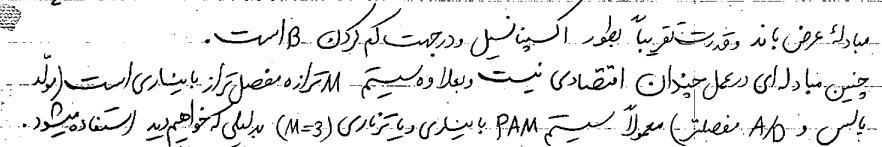 مبادلهٔ عرض باند و قدرت تقریباً بطور اکسپنانسیل و در جهت کم کردن B است.
چنین مبادله ای در عمل چندان اقتصادی نیست و بعلاوه سیستم M ترازه مفصل تر از باینری است (مولد
پالس و A/D مفصلتر) معمولاً سیستم PAM باینری و یا ترناری (M=3) بدلیلی که خواهیم دید استفاده میشود.